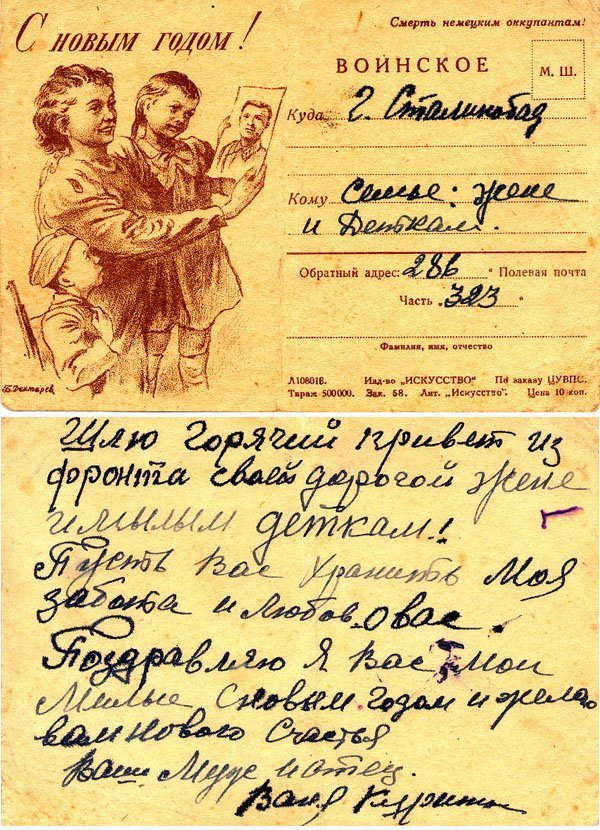 С новым годом!
Смерть немецким оккупантам!
ВОИНСКОЕ
М. Ш.
Куда г. Сталинобад
Кому семье: жене
и Деткам.
Обратный адрес: 286 Полевая почта
Часть 323
Фамилия, имя, отчество
Б. Дехтерев
Л108018. Изд-во „ИСКУССТВО“ По заказу ЦУВПС.
Тираж 500000. Зак. 58. Лит. „Искусство“. Цена 10 коп.
Шлю горячий привет из
фронта своей дорогой жене
и милым деткам!
Пусть Вас хранить моя
забота и любов о вас.
Поздравляю я Вас мои
Милые с новым годом и желаю
вам нового счастья
Ваш Муж и отец.
Ваня